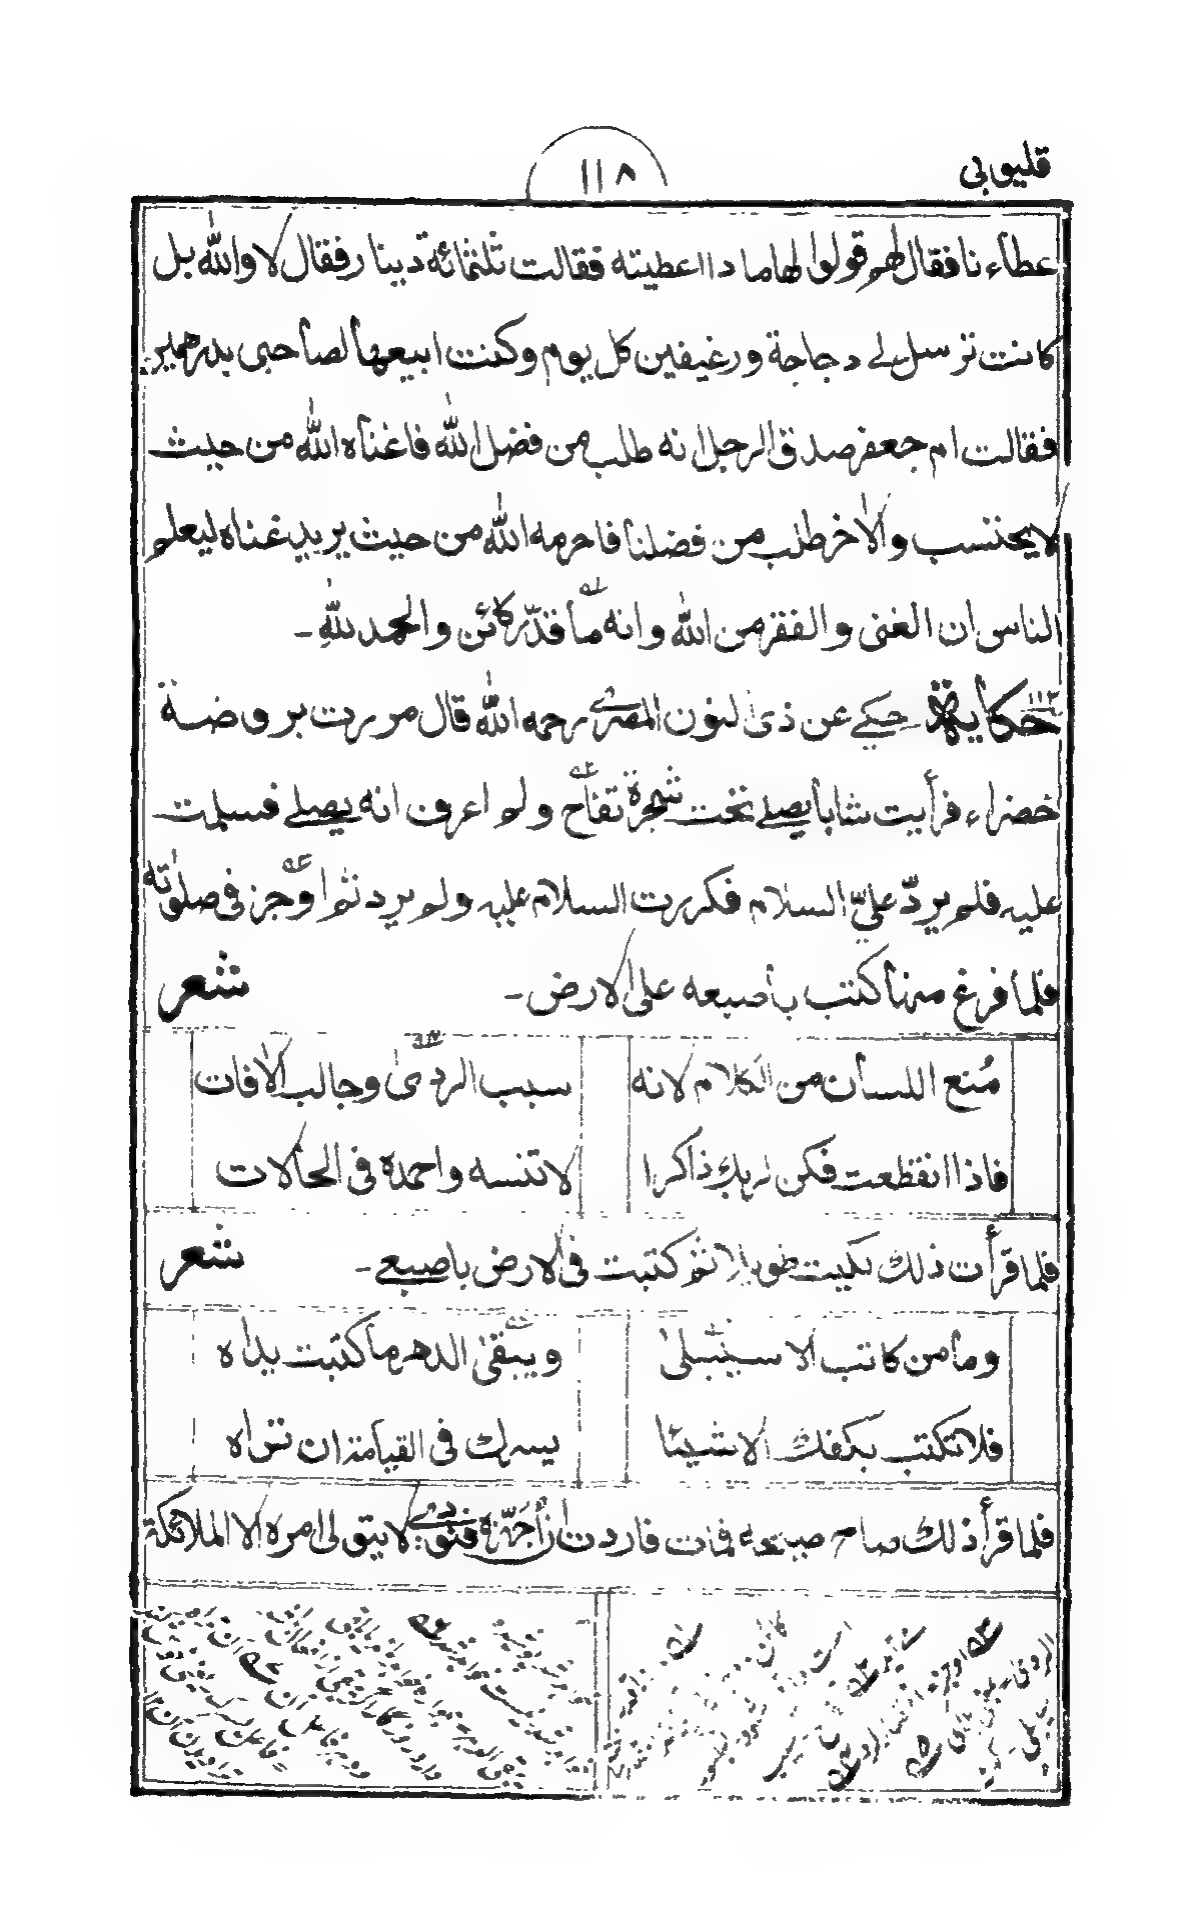 قليوبي
١١٨
عطاءنا فقال لهم قولوا لها ماذا اعطيته فقالت ثلثمائة دينار فقال لا والله بل
كانت ترسل لي دجاجة ورغيفين كل يوم وكنت ابيعها لصاحبى بدرهمين
فقالت ام جعفر صدق الرجل انه طلب من فضل الله فاغناه الله من حيث
لا يحتسب والاٰخر طلب من فضلنا فاحرمه الله من حيث يريد غناه ليعلم
الناس ان الغنى والفقر من الله وانه ما قدّر كائن والحمد لله ـ
١١٣ حكاية حكي عن ذى النون المصري رحمه الله قال مررت بروضة
خضراء فرأيت شابا يصلي تحت شجرة تفاح ولم اعرف انه يصلي فسلمت
عليه فلم يردّ عليّ السلام فكررت السلام عليه ولم يرد ثم اوجز فى صلوٰته
فلما فرغ منها كتب باصبعه على الارض ـ شعر
مُنع اللسان من الكلام لانه سبب الردىٰ وجالب الاٰفات
فاذا انقطعت فكن لربك ذاكرا لا تنسه واحمده فى الحالات
فلما قرأت ذلك بكيت طويلا ثم كتبت فى الارض باصبعي ـ شعر
وما من كاتب الا سيبلىٰ ويبقىٰ الدهر ما كتبت يداه
فلا تكتب بكفك الا شيئا يسرك فى القيامة ان تراه
فلما قرأ ذلك صاح صيحة فمات فاردت ان أجهّزه فنودي لا يتولى امره الا الملائكة